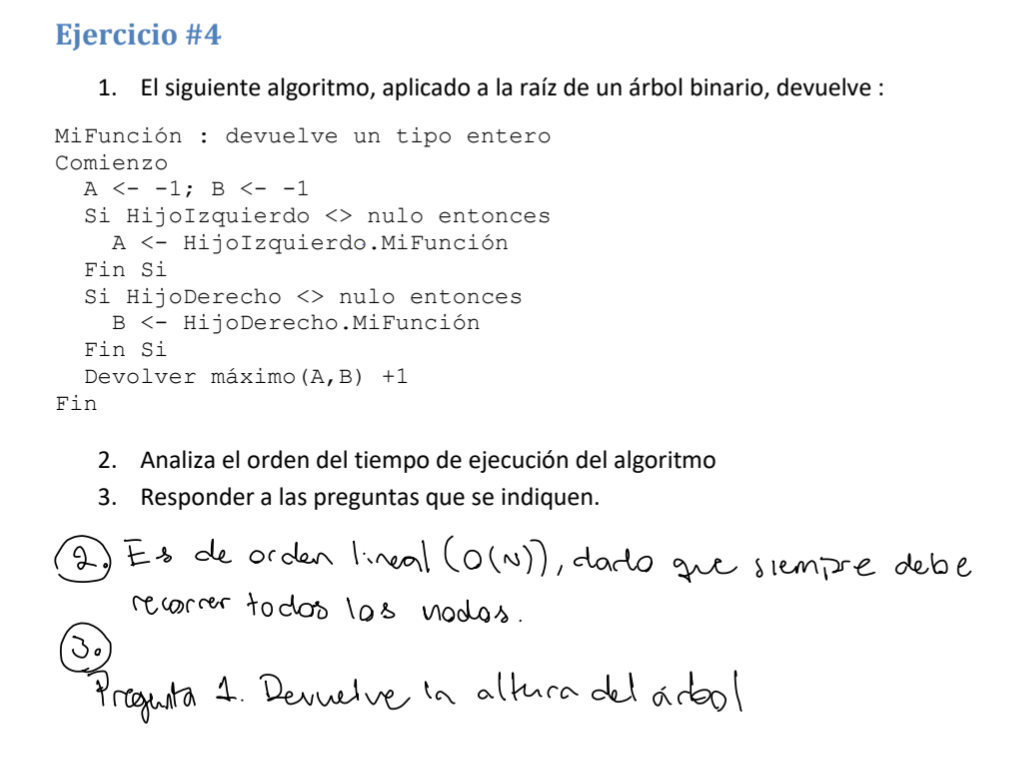 Ejercicio #4
1. El siguiente algoritmo, aplicado a la raíz de un árbol binario, devuelve :
MiFunción : devuelve un tipo entero
Comienzo
A <- -1; B <- -1
Si HijoIzquierdo <> nulo entonces
A <- HijoIzquierdo.MiFunción
Fin Si
Si HijoDerecho <> nulo entonces
B <- HijoDerecho.MiFunción
Fin Si
Devolver máximo(A,B) +1
Fin
2. Analiza el orden del tiempo de ejecución del algoritmo
3. Responder a las preguntas que se indiquen.
2. Es de orden lineal (O(N)), dado que siempre debe
recorrer todos los nodos.
3.
Pregunta 1. Devuelve la altura del árbol